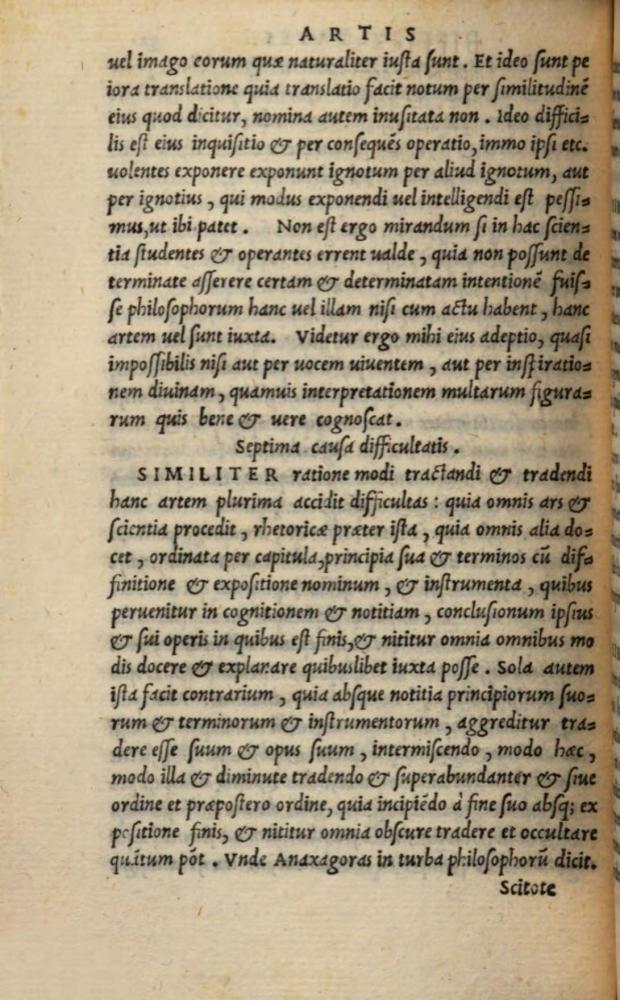 ARTIS
uel imago eorum quæ naturaliter iusta sunt. Et ideo sunt pe
iora translatione quia translatio facit notum per similitudinē
eius quod dicitur, nomina autem inusitata non. Ideo diffici⸗
lis est eius inquisitio & per consequēs operatio, immo ipsi etc.
uolentes exponere exponunt ignotum per aliud ignotum, aut
per ignotius, qui modus exponendi uel intelligendi est pessi⸗
mus, ut ibi patet. Non est ergo mirandum si in hac scien⸗
tia studentes & operantes errent ualde, quia non possunt de
terminate asserere certam & determinatam intentionē fuis⸗
se philosophorum hanc uel illam nisi cum actu habent, hanc
artem uel sunt iuxta. Videtur ergo mihi eius adeptio, quasi
impossibilis nisi aut per uocem uiuentem, aut per inspiratio⸗
nem diuinam, quamuis interpretationem multarum figura⸗
rum quis bene & uere cognoscat.
Septima causa difficultatis.
SIMILITER ratione modi tractandi & tradendi
hanc artem plurima accidit difficultas: quia omnis ars &
scientia procedit, rhetoricæ præter ista, quia omnis alia do⸗
cet, ordinata per capitula, principia sua & terminos cū dif⸗
finitione & expositione nominum, & instrumenta, quibus
peruenitur in cognitionem & notitiam, conclusionum ipsius
& sui operis in quibus est finis, & nititur omnia omnibus mo
dis docere & explanare quibuslibet iuxta posse. Sola autem
ista facit contrarium, quia absque notitia principiorum suo⸗
rum & terminorum & instrumentorum, aggreditur tra⸗
dere esse suum & opus suum, intermiscendo, modo hæc,
modo illa & diminute tradendo & superabundanter & siue
ordine et præpostero ordine, quia incipiēdo à fine suo absq; ex
positione finis, & nititur omnia obscure tradere et occultare
quātum pōt. Vnde Anaxagoras in turba philosophorū dicit.
Scitote